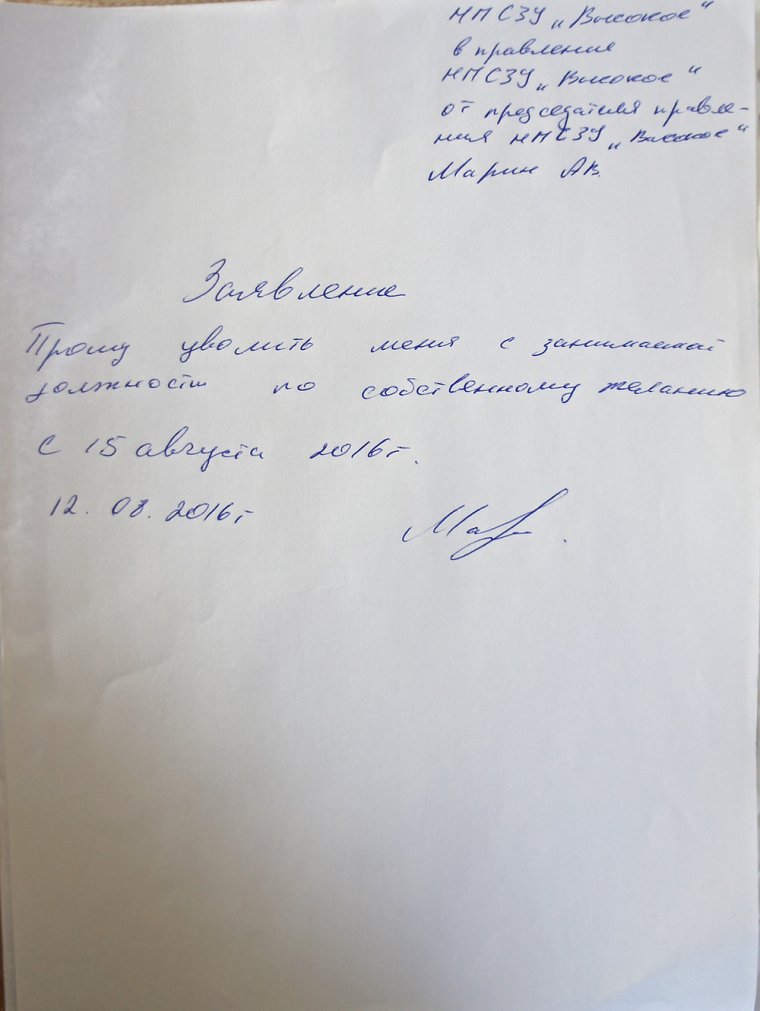 НПСЗУ „Высокое“
в правления
НПСЗУ „Высокое“
от председателя правле-
ния НПСЗУ „Высокое“
Марин А.В.
Заявление
Прошу уволить меня с занимаемой
должности по собственному желанию
с 15 августа 2016г.
12.08.2016г